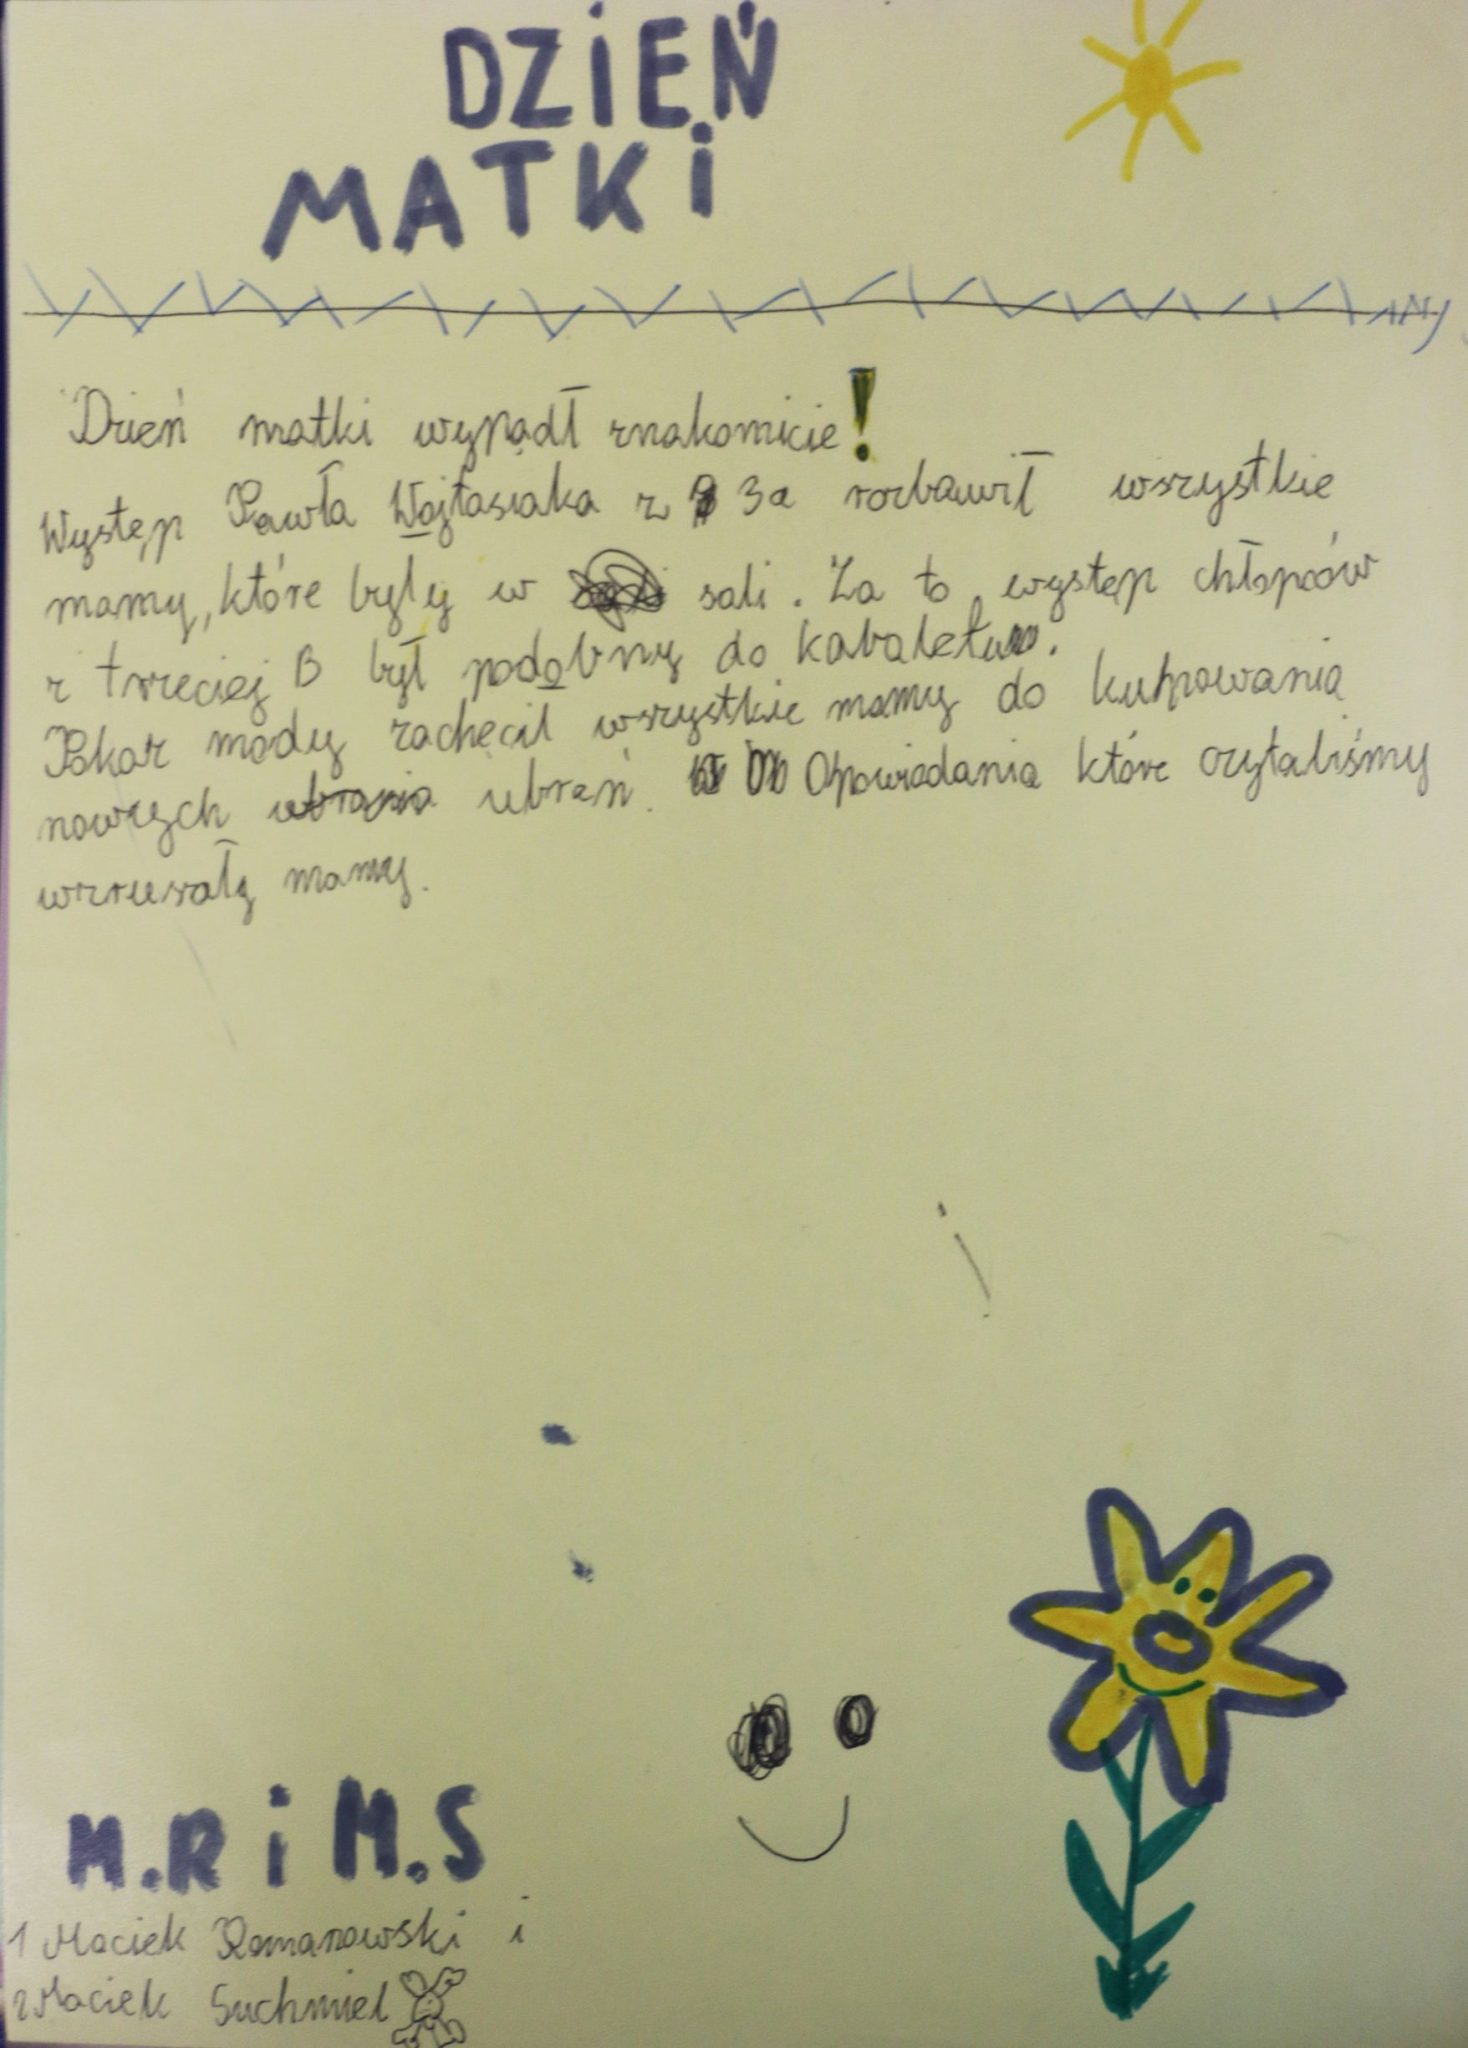 DZiEŃ
MATKi
Dzień matki wypadł znakomicie!
Występ Pawła Wojtasiaka z 3a rozbawił wszystkie
mamy, które były w sali. Za to występ chłopców
z trzeciej B był podobny do kabaletu.
Pokaz mody zachęcił wszystkie mamy do kupowania
nowych ubrania ubrań. Opowiadania które czytaliśmy
wzruszały mamy.
M.R i M.S
1 Maciek Romanowski i
2 Maciek Suchmiel